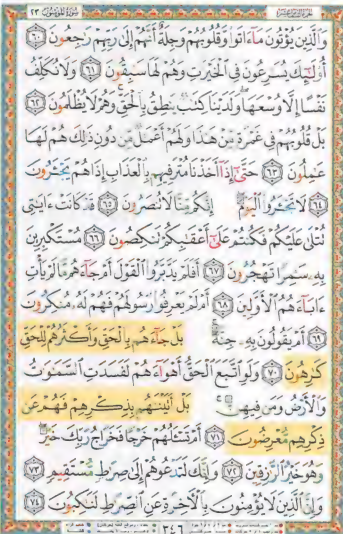 الجزء الثامن عشر سورة المؤمنون ٢٣
وَٱلَّذِينَ يُؤْتُونَ مَآ ءَاتَوا۟ وَّقُلُوبُهُمْ وَجِلَةٌ أَنَّهُمْ إِلَىٰ رَبِّهِمْ رَٰجِعُونَ ٦٠
أُو۟لَٰٓئِكَ يُسَٰرِعُونَ فِى ٱلْخَيْرَٰتِ وَهُمْ لَهَا سَٰبِقُونَ ٦١ وَلَا نُكَلِّفُ
نَفْسًا إِلَّا وُسْعَهَا وَلَدَيْنَا كِتَٰبٌ يَنطِقُ بِٱلْحَقِّ وَهُمْ لَا يُظْلَمُونَ ٦٢
بَلْ قُلُوبُهُمْ فِى غَمْرَةٍ مِّنْ هَٰذَا وَلَهُمْ أَعْمَٰلٌ مِّن دُونِ ذَٰلِكَ هُمْ لَهَا
عَٰمِلُونَ ٦٣ حَتَّىٰٓ إِذَآ أَخَذْنَا مُتْرَفِيهِم بِٱلْعَذَابِ إِذَا هُمْ يَجْـَٔرُونَ
٦٤ لَا تَجْـَٔرُوا۟ ٱلْيَوْمَ إِنَّكُم مِّنَّا لَا تُنصَرُونَ ٦٥ قَدْ كَانَتْ ءَايَٰتِى
تُتْلَىٰ عَلَيْكُمْ فَكُنتُمْ عَلَىٰٓ أَعْقَٰبِكُمْ تَنكِصُونَ ٦٦ مُسْتَكْبِرِينَ
بِهِۦ سَٰمِرًا تَهْجُرُونَ ٦٧ أَفَلَمْ يَدَّبَّرُوا۟ ٱلْقَوْلَ أَمْ جَآءَهُم مَّا لَمْ يَأْتِ
ءَابَآءَهُمُ ٱلْأَوَّلِينَ ٦٨ أَمْ لَمْ يَعْرِفُوا۟ رَسُولَهُمْ فَهُمْ لَهُۥ مُنكِرُونَ
٦٩ أَمْ يَقُولُونَ بِهِۦ جِنَّةٌۢ بَلْ جَآءَهُم بِٱلْحَقِّ وَأَكْثَرُهُمْ لِلْحَقِّ
كَٰرِهُونَ ٧٠ وَلَوِ ٱتَّبَعَ ٱلْحَقُّ أَهْوَآءَهُمْ لَفَسَدَتِ ٱلسَّمَٰوَٰتُ
وَٱلْأَرْضُ وَمَن فِيهِنَّ بَلْ أَتَيْنَٰهُم بِذِكْرِهِمْ فَهُمْ عَن
ذِكْرِهِم مُّعْرِضُونَ ٧١ أَمْ تَسْـَٔلُهُمْ خَرْجًا فَخَرَاجُ رَبِّكَ خَيْرٌ
وَهُوَ خَيْرُ ٱلرَّٰزِقِينَ ٧٢ وَإِنَّكَ لَتَدْعُوهُمْ إِلَىٰ صِرَٰطٍ مُّسْتَقِيمٍ ٧٣
وَإِنَّ ٱلَّذِينَ لَا يُؤْمِنُونَ بِٱلْءَاخِرَةِ عَنِ ٱلصِّرَٰطِ لَنَٰكِبُونَ ٧٤
٣٤٦